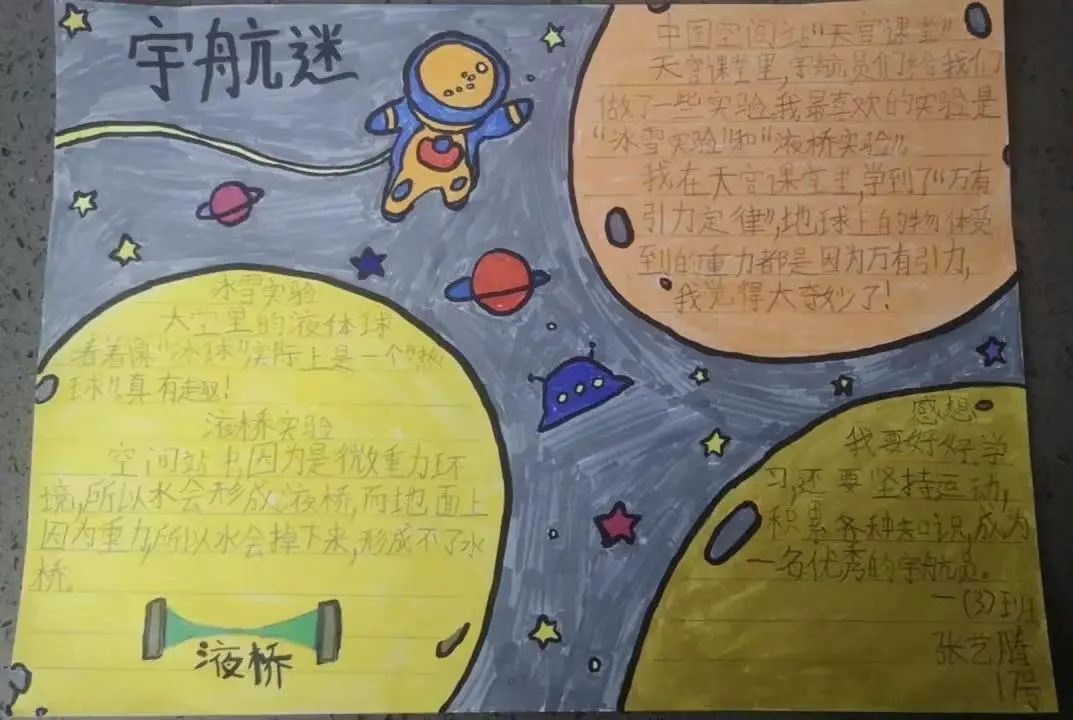 宇航迷
中国空间站“天宫课堂”
天宫课堂里,宇航员们给我们
做了一些实验,我最喜欢的实验是
“冰雪实验”和“液桥实验”。
我在天宫课堂里,学到了“万有
引力定律”,地球上的物体受
到的重力都是因为万有引力,
我觉得太奇妙了!
冰雪实验
太空里的液体球
看着像“冰球”实际上是一个“热
球”,真有趣!
液桥实验
空间站中,因为是微重力环
境,所以水会形成液桥,而地面上
因为重力,所以水会掉下来,形成不了水
桥。
液桥
感想:
我要好好学
习,还要坚持运动,
积累各种知识,成为
一名优秀的宇航员。
一(3)班
张艺腾
17号